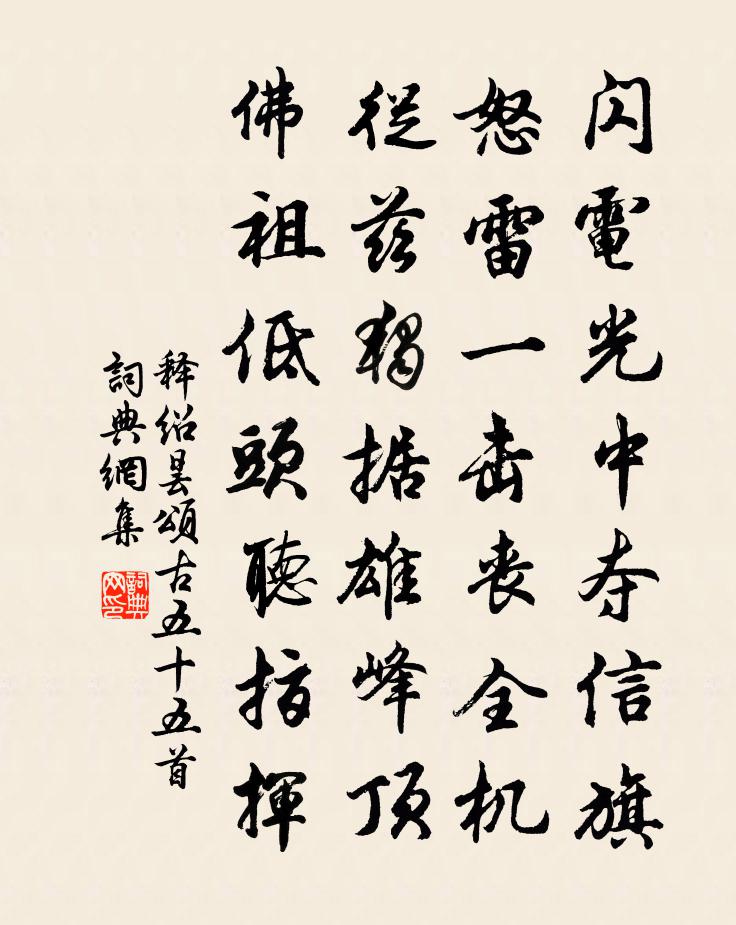 閃電光中夺信旗
怒雷一击丧全机
從茲獨据雄峰頂
佛祖低頭聽指揮
释绍昙頌古五十五首
詞典網集
詞典网印